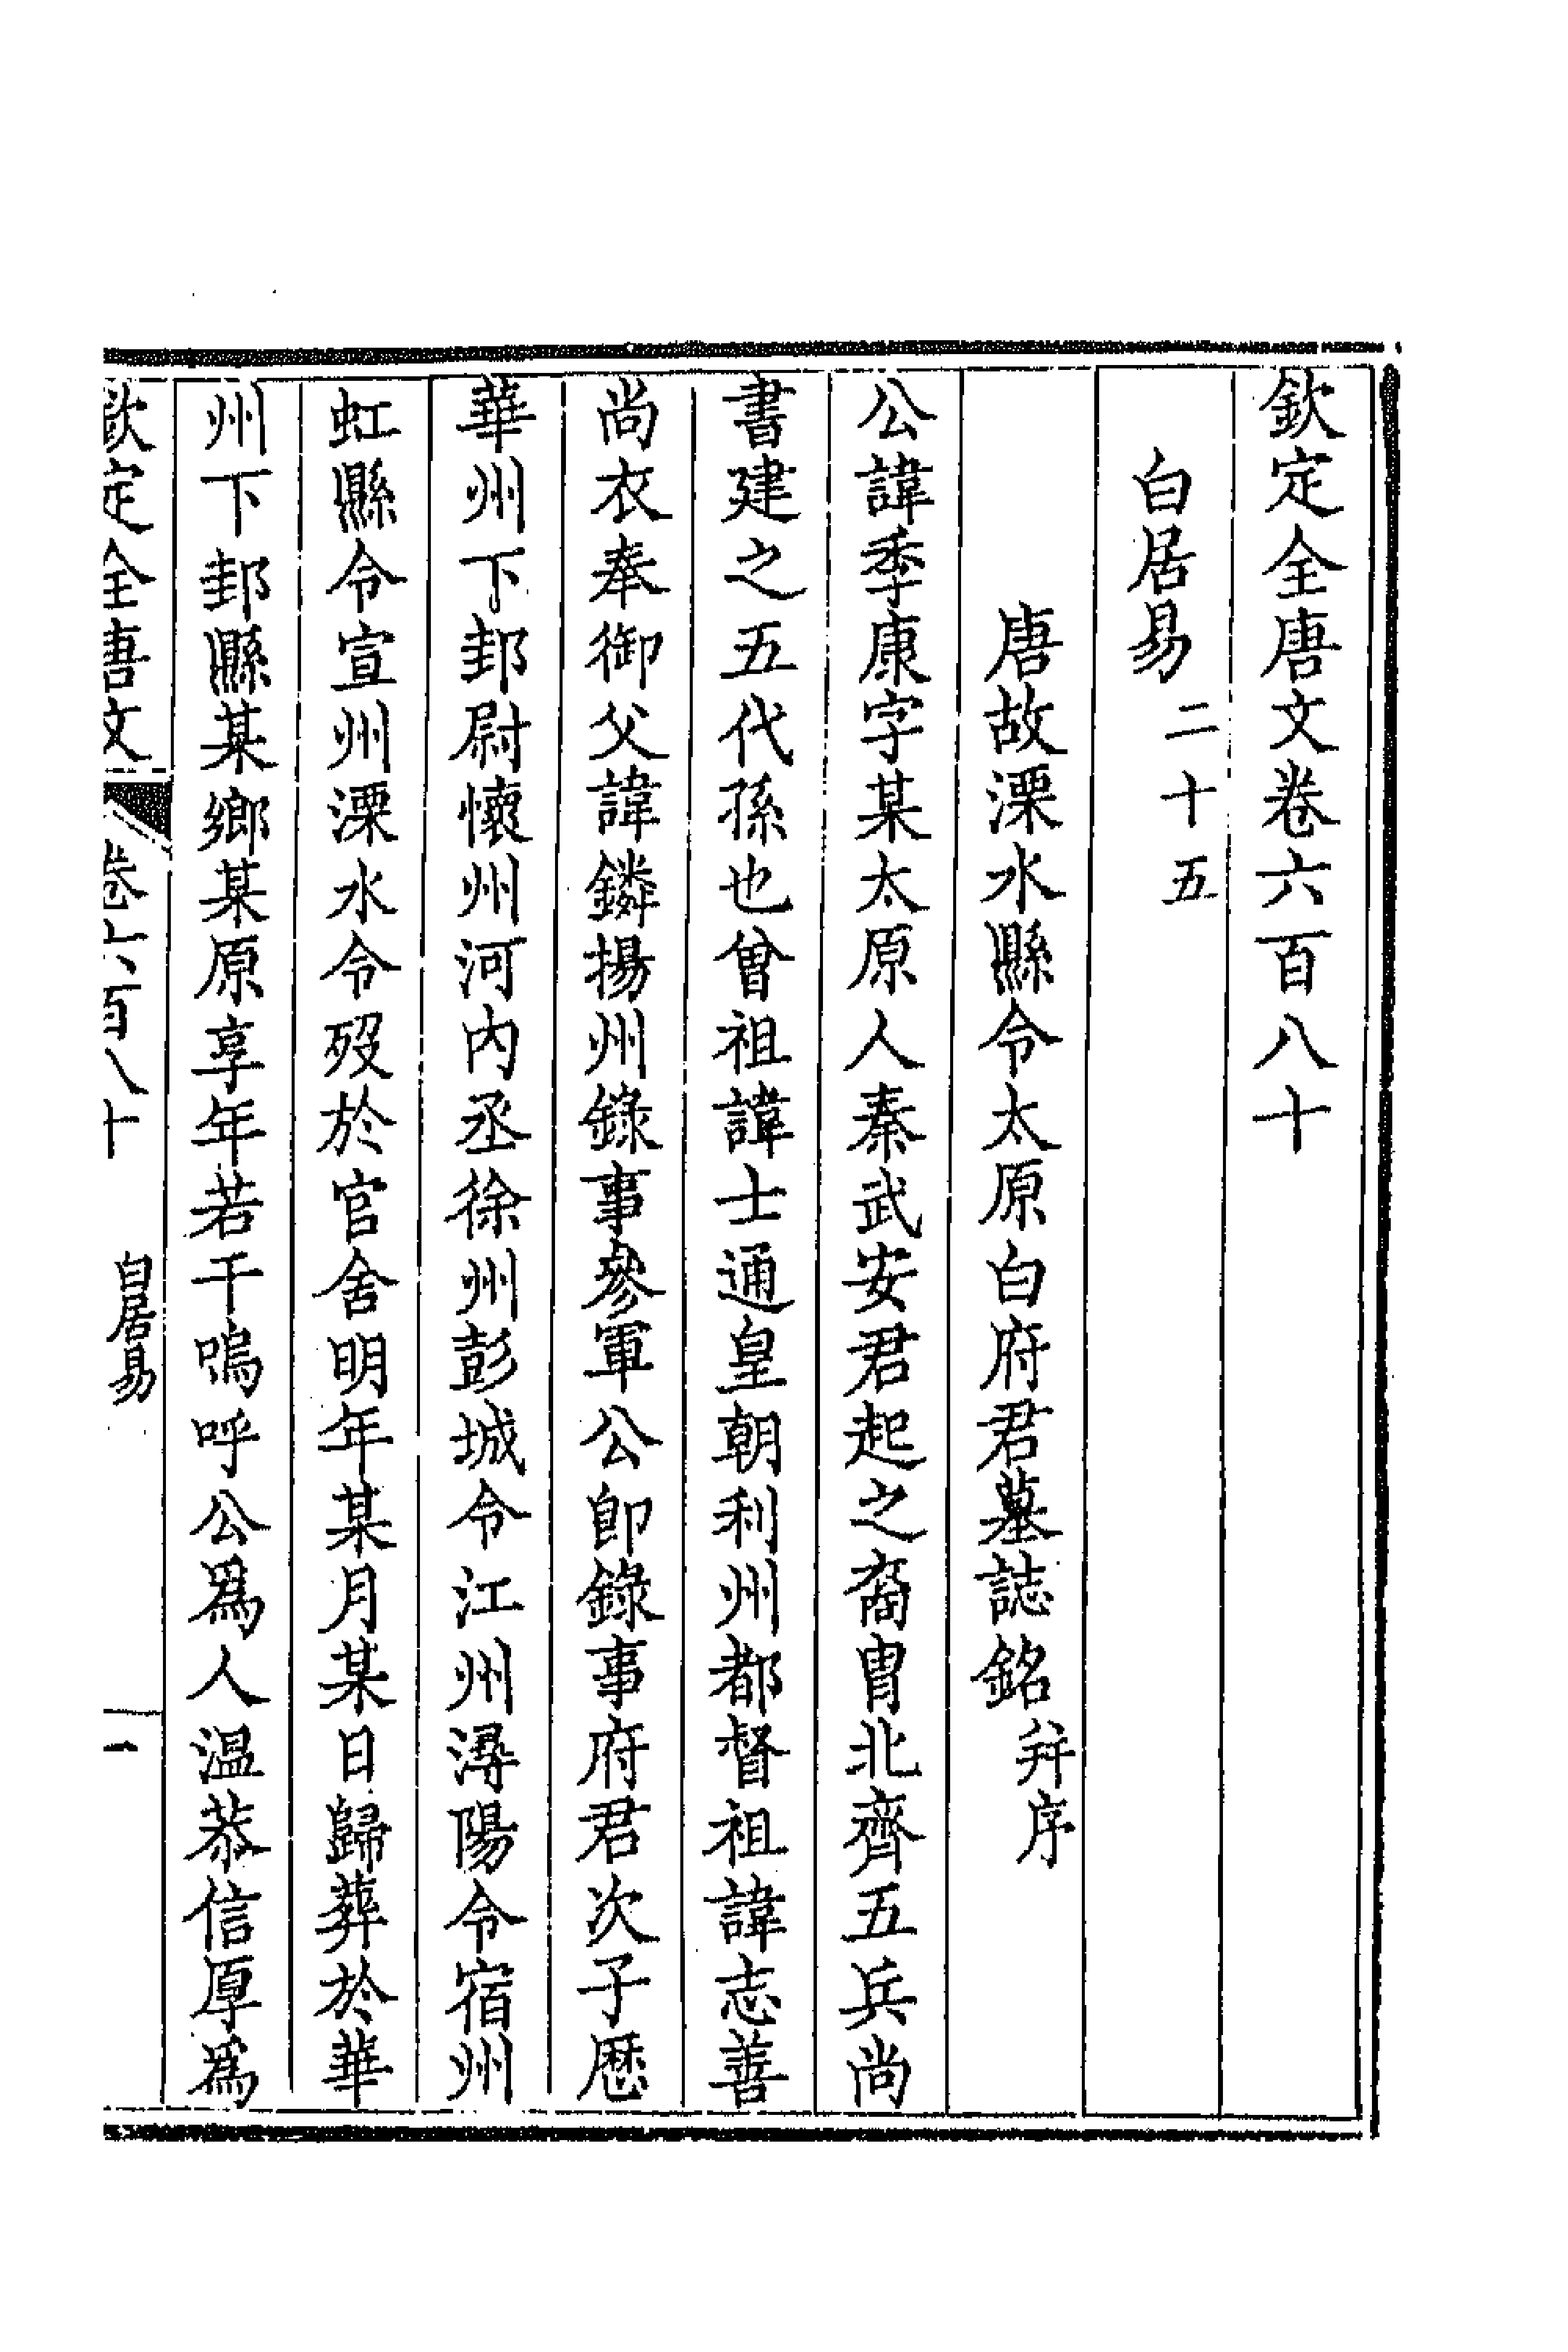 欽定全唐文卷六百八十
白居易二十五
唐故溧水縣令太原白府君墓誌銘并序
公諱季康字某太原人秦武安君起之裔胄北齊五兵尚
書建之五代孫也曾祖諱士通皇朝利州都督祖諱志善
尚衣奉御父諱鏻揚州錄事參軍公即錄事府君次子歷
華州下邽尉懷州河內丞徐州彭城令江州潯陽令宿州
虹縣令宣州溧水令歿於官舍明年某月某日歸葬於華
州下邽縣某鄉某原享年若干嗚呼公爲人温恭信厚爲
欽定全唐文 卷六百八十 白居易 一